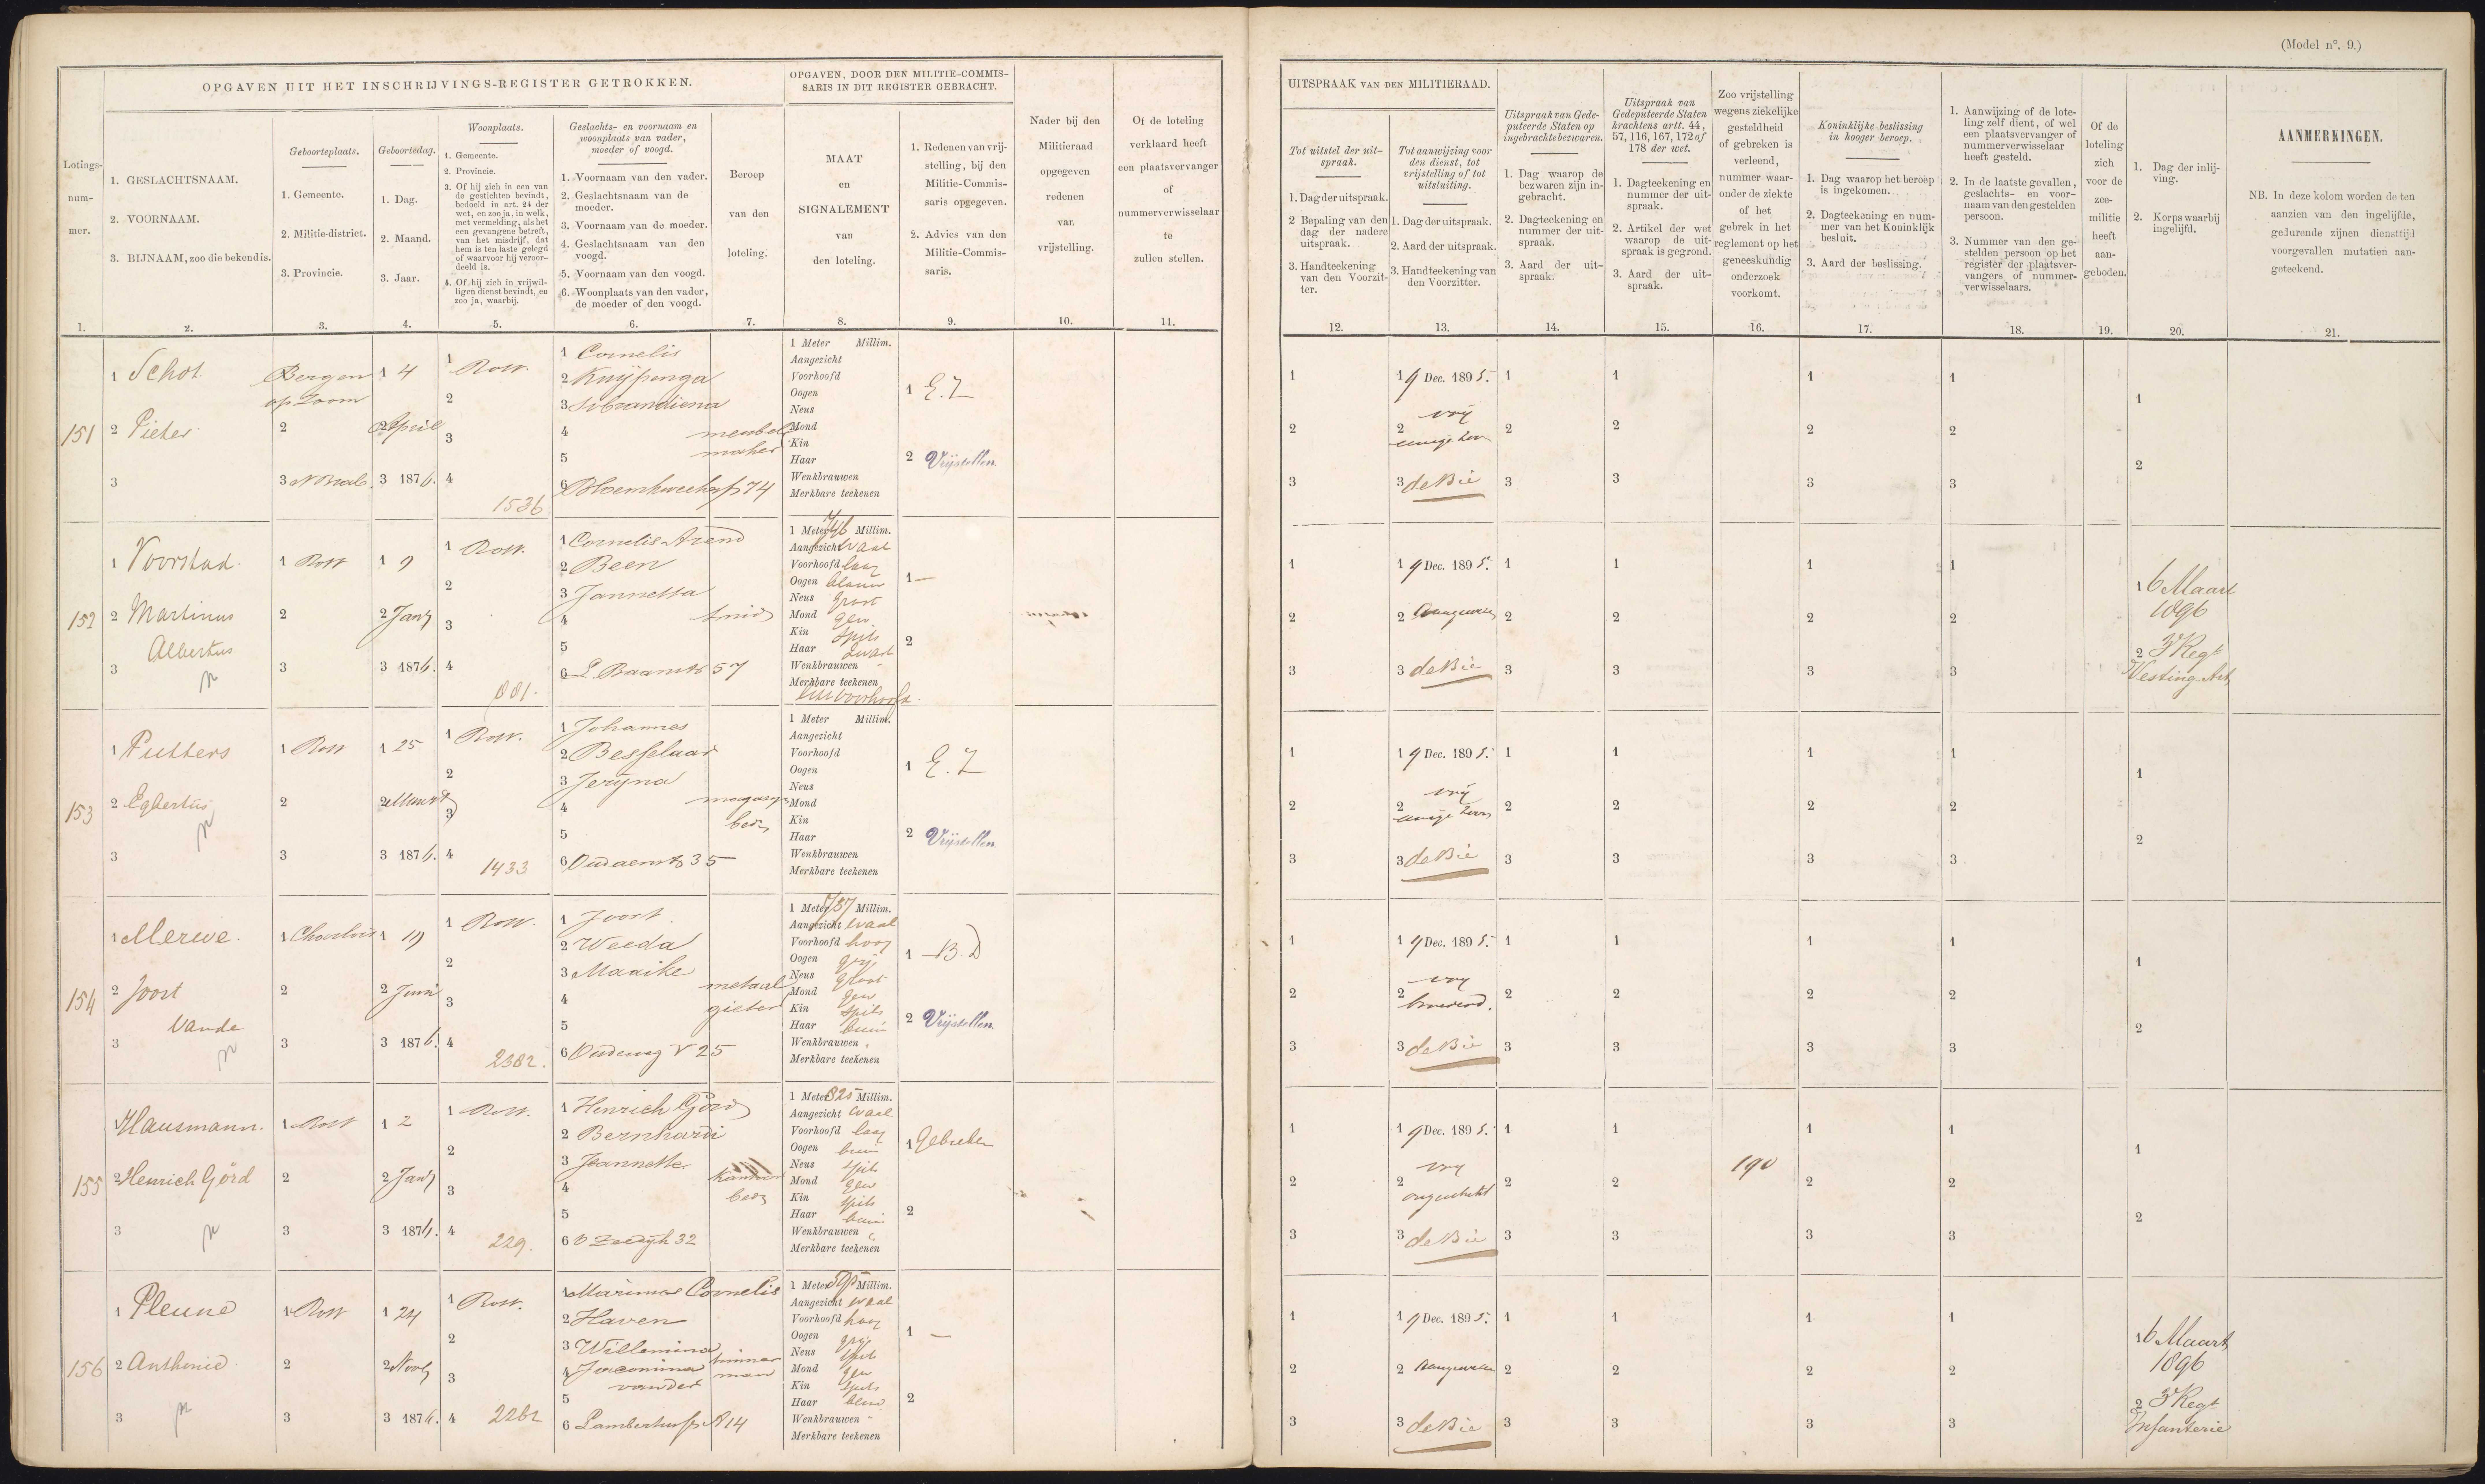 (Model n°. 9.)
OPGAVEN UIT HET INSCHRIJVINGS-REGISTER GETROKKEN.
OPGAVEN, DOOR DEN MILITIE-COMMIS-
SARIS IN DIT REGISTER GEBRACHT.
Lotings-
num-
mer.
1. GESLACHTSNAAM.
2. VOORNAAM.
3. BIJNAAM, zoo die bekend is.
Geboorteplaats.
1. Gemeente.
2. Militie-district.
3. Provincie.
Geboortedag.
1. Dag.
2. Maand.
3. Jaar.
Woonplaats.
1. Gemeente.
2. Provincie.
3. Of hij zich in een van
de gestichten bevindt,
bedoeld in art. 24 der
wet, en zoo ja, in welk,
met vermelding, als het
een gevangene betreft,
van het misdrijf, dat
hem is ten laste gelegd
of waarvoor hij veroor-
deeld is.
4. Of hij zich in vrijwil-
ligen dienst bevindt, en
zoo ja, waarbij.
Geslachts- en voornaam en
woonplaats van vader,
moeder of voogd.
1. Voornaam van den vader.
2. Geslachtsnaam van de
moeder.
3. Voornaam van de moeder.
4. Geslachtsnaam van den
voogd.
5. Voornaam van den voogd.
6. Woonplaats van den vader,
de moeder of den voogd.
Beroep
van den
loteling.
MAAT
en
SIGNALEMENT
van
den loteling.
1. Redenen van vrij-
stelling, bij den
Militie-Commis-
saris opgegeven.
2. Advies van den
Militie-Commis-
saris.
Nader bij den
Militieraad
opgegeven
redenen
van
vrijstelling.
Of de loteling
verklaard heeft
een plaatsvervanger
of
nummerverwisselaar
te
zullen stellen.
1. 2. 3. 4. 5. 6. 7. 8. 9. 10. 11.
UITSPRAAK VAN DEN MILITIERAAD.
Tot uitstel der uit-
spraak.
1. Dag der uitspraak.
2 Bepaling van den
dag der nadere
uitspraak.
3. Handteekening
van den Voorzit-
ter.
Tot aanwijzing voor
den dienst, tot
vrijstelling of tot
uitsluiting.
1. Dag der uitspraak.
2. Aard der uitspraak.
3. Handteekening van
den Voorzitter.
Uitspraak van Gede-
puteerde Staten op
ingebrachte bezwaren.
1. Dag waarop de
bezwaren zijn in-
gebracht.
2. Dagteekening en
nummer der uit-
spraak.
3. Aard der uit-
spraak.
Uitspraak van
Gedeputeerde Staten
krachtens artt. 44,
57, 116, 167, 172 of
178 der wet.
1. Dagteekening en
nummer der uit-
spraak.
2. Artikel der wet
waarop de uit-
spraak is gegrond.
3. Aard der uit-
spraak.
Zoo vrijstelling
wegens ziekelijke
gesteldheid
of gebreken is
verleend,
nummer waar-
onder de ziekte
of het
gebrek in het
reglement op het
geneeskundig
onderzoek
voorkomt.
Koninklijke beslissing
in hooger beroep.
1. Dag waarop het beroep
is ingekomen.
2. Dagteekening en num-
mer van het Koninklijk
besluit.
3. Aard der beslissing.
1. Aanwijzing of de lote-
ling zelf dient, of wel
een plaatsvervanger of
nummerverwisselaar
heeft gesteld.
2. In de laatste gevallen,
geslachts- en voor-
naam van den gestelden
persoon.
3. Nummer van den ge-
stelden persoon op het
register der plaatsver-
vangers of nummer-
verwisselaars.
Of de
loteling
zich
voor de
zee-
militie
heeft
aan-
geboden.
1. Dag der inlij-
ving.
2. Korps waarbij
ingelijfd.
AANMERKINGEN.
NB. In deze kolom worden de ten
aanzien van den ingelijfde,
gedurende zijnen diensttijd
voorgevallen mutatien aan-
geteekend.
12. 13. 14. 15. 16. 17. 18. 19. 20. 21.
151
1 Schot
2 Pieter
3
Bergen
op Zoom
2
3 N Brab.
1 4
2 April
3 1876.
1 Rott.
2
3
4
1536
1 Cornelis
2 Kuijpenga
3 Sibrandiena
4
5
6
meubel
maker
1 Meter Millim.
Aangezicht
Voorhoofd
Oogen
Neus
Mond
Kin
Haar
Wenkbrauwen
Merkbare teekenen
1 E. Z
2 Vrijstellen.
1 9 Dec. 1895.
2 vrij
eenige zoon
3 de Bie
152
1 Voorstad.
2 Martinus
Albertus
3
1 Rott
2
3
1 9
2 Jany
3 1876.
1 Rott.
2
3
4
881.
1 Cornelis Arend
2 Been
3 Jannetta
4
5
6 L. Baanstr 57
smid
1 Meter 746 Millim.
Aangezicht ovaal
Voorhoofd laag
Oogen blauw
Neus groot
Mond gew
Kin spits
Haar zwart
Wenkbrauwen
Merkbare teekenen
1 —
2
1 9 Dec. 1895.
2 Aangewezen
3 de Bie
1 6 Maart
1896
2 3e Regt
Vesting Art
153
1 Putters
2 Egbertus
3
1 Rott
2
3
1 25
2 Maart
3 1876.
1 Rott.
2
3
4
1433
1 Johannes
2 Besselaar
3 Jerijna
4
5
6 Oudaenstr 35
magazijn
bed
1 Meter Millim.
Aangezicht
Voorhoofd
Oogen
Neus
Mond
Kin
Haar
Wenkbrauwen
Merkbare teekenen
1 E. Z
2 Vrijstellen.
1 9 Dec. 1895.
2 vrij
eenige zoon
3 de Bie
154
1 Merwe.
2 Joost
van de
3
1 Charlois
2
3
1 19
2 Juni
3 1876.
1 Rott.
2
3
4
2382.
1 Joost
2 Weeda
3 Maaike
4
5
6 Oudeweg V 25
metaal
gieter
1 Meter 737 Millim.
Aangezicht ovaal
Voorhoofd hoog
Oogen grijs
Neus groot
Mond gew
Kin spits
Haar bruin
Wenkbrauwen
Merkbare teekenen
1 B D
2 Vrijstellen.
1 9 Dec. 1895.
2 vrij
broederd.
3 de Bie
155
1 Hausmann.
2 Henrich Görd
3
1 Rott
2
3
1 2
2 Jany
3 1876.
1 Rott.
2
3
4
229.
1 Henrich Görd
2 Bernhardi
3 Jeannette
4
5
6 O Zeedijk 32
kantoor
bed
1 Meter 825 Millim.
Aangezicht ovaal
Voorhoofd laag
Oogen bruin
Neus spits
Mond gew
Kin spits
Haar bruin
Wenkbrauwen
Merkbare teekenen
1 Gebreken
2
1 9 Dec. 1895.
2 vrij
ongeschikt
3 de Bie
190
156
1 Pleune
2 Anthonie
3
1 Rott
2
3
1 24
2 Novb
3 1876.
1 Rott.
2
3
4
2262
1 Marinus Cornelis
2 Haven
3 Willemina
4 Jacomina
van der
5
6
timmer
man
1 Meter 595 Millim.
Aangezicht ovaal
Voorhoofd hoog
Oogen grijs
Neus spits
Mond gew
Kin spits
Haar blond
Wenkbrauwen
Merkbare teekenen
1 —
2
1 9 Dec. 1895.
2 Aangewezen
3 de Bie
1 6 Maart
1896
2 3e Regt
Infanterie